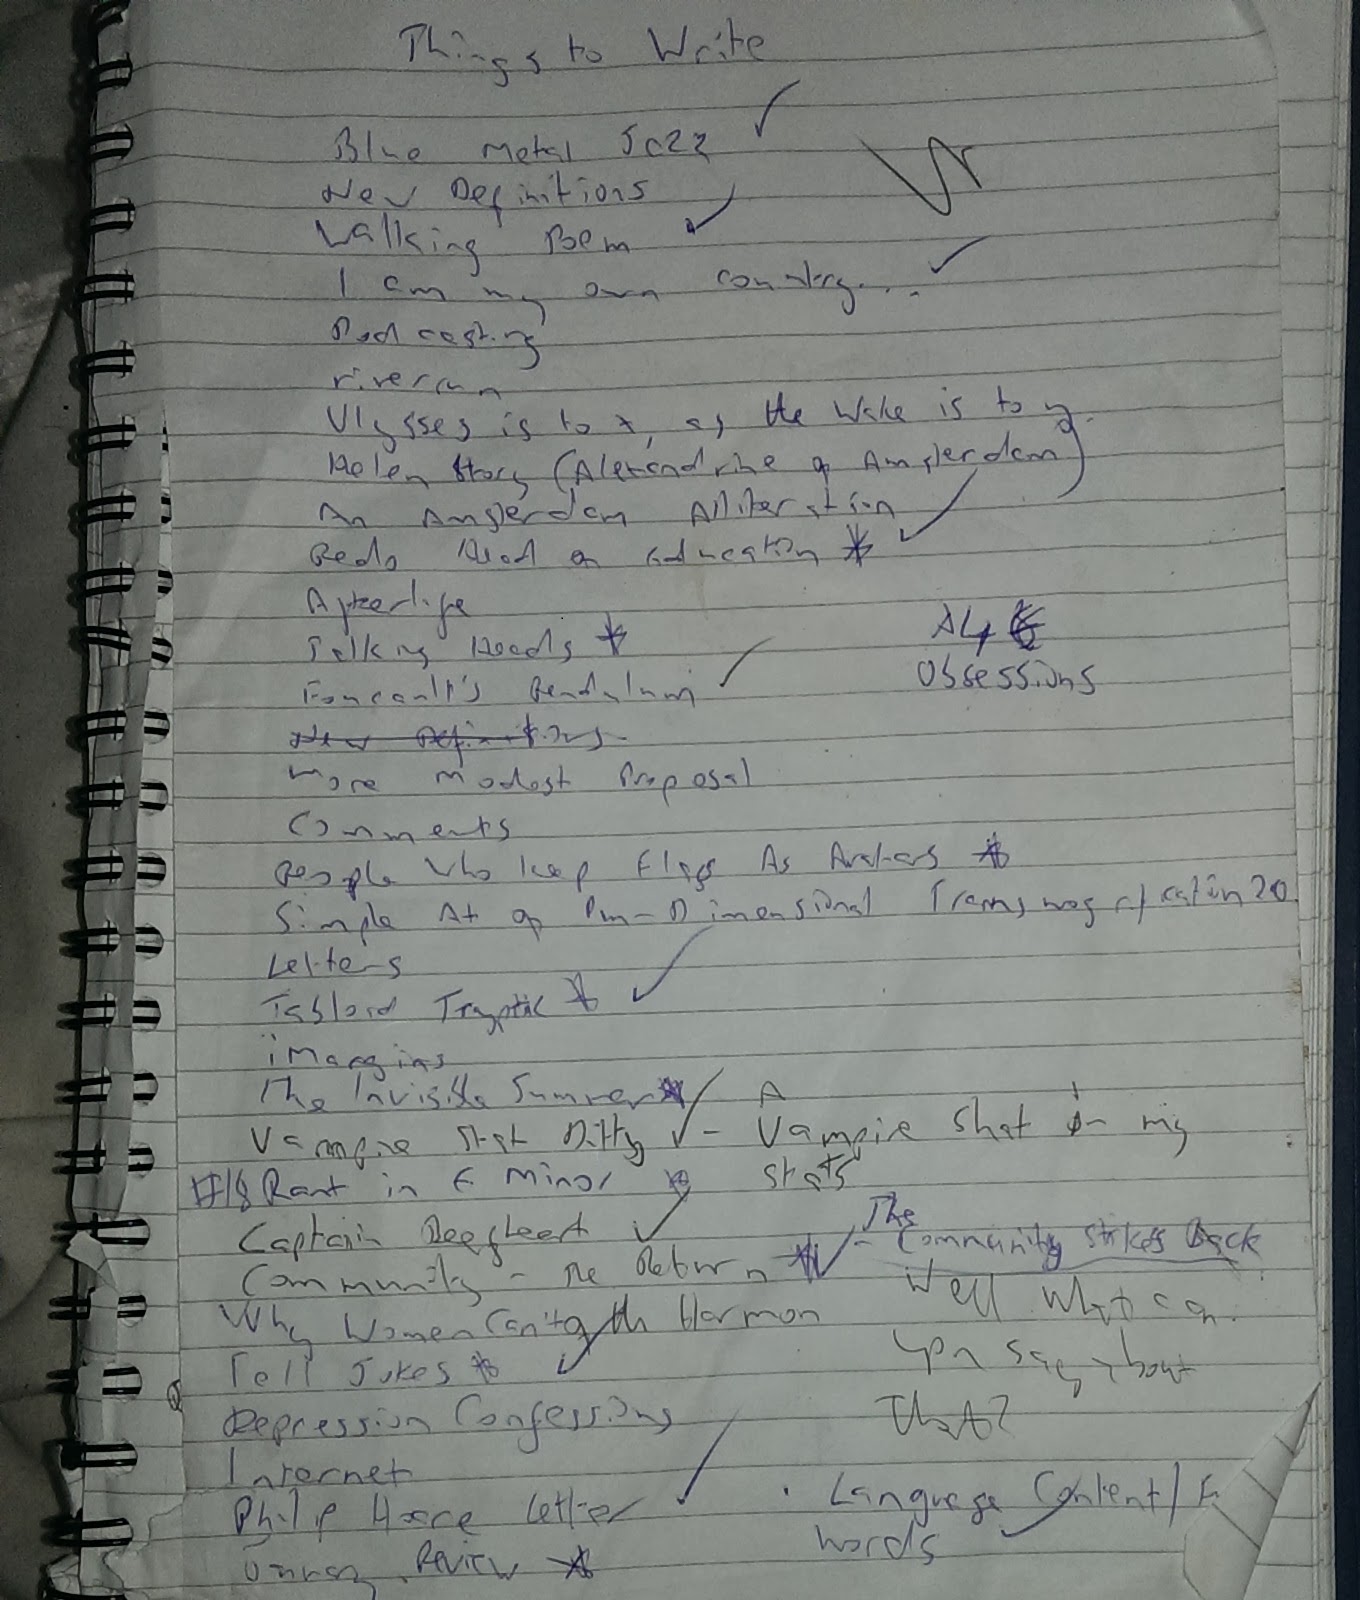 Things to Write
Blue Metal Jazz
New Definitions
Walking Poem
I am my own country...
Podcasting
riverrun
Ulysses is to x, as the Wake is to y.
Helen Story (Alexandrine of Amsterdam)
An Amsterdam Alliteration
Redo on Education *
Afterlife
Talking Heads *
Obsessions
Foucault's Pendulum
New Definitions
More Modest Proposal
Comments
People who keep Flags As *
Simple At of Pm-Dimensional 20
Letters
Tabloid *
iMargins
The Invisible Summer *
Vampire Shat Ditty - A Vampire Shat in my
stats
#18 Rant in E Minor *
Captain
Community - The Return * - The Community Strikes Back
Why Women Can't Harmon
Well what can
Tell Jokes *
you say about
That?
Depression Confessions
Internet
Philip Letter
. Language Content/F
words
Review *